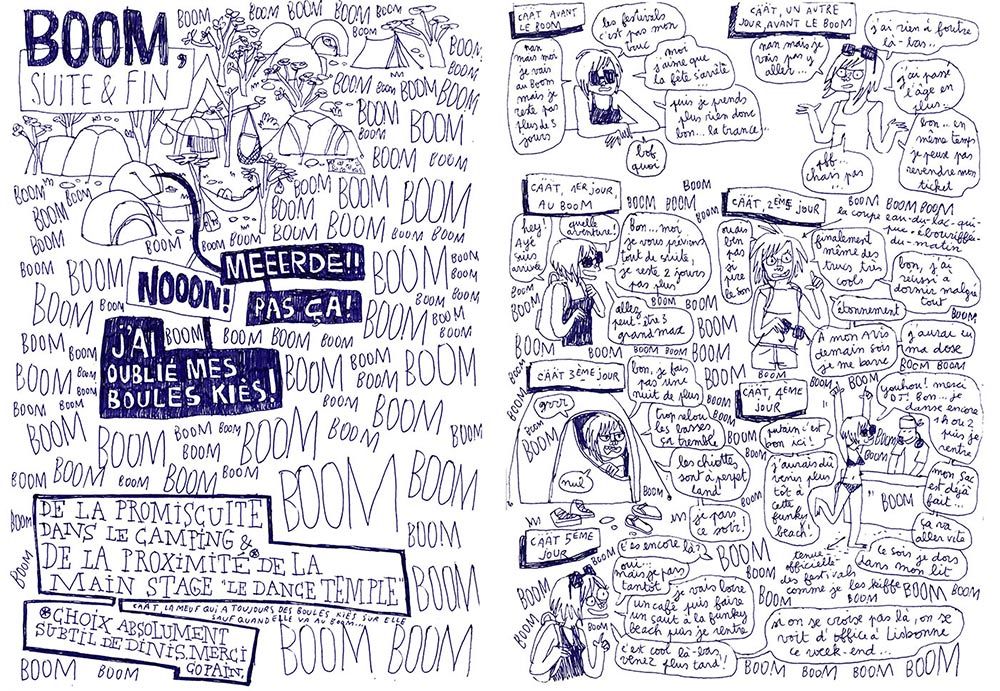 BOOM,
SUITE & FIN
BOOM BOOM BOOM BOOM
BOOM BOOM BOOM
BOOM BOOM BOOM
NOOON!
MEEERDE!!
PAS ÇA!
J'AI
OUBLIÉ MES
BOULES KIÈS!
BOOM BOOM BOOM
BOOM BOOM BOOM
DE LA PROMISCUITÉ
DANS LE CAMPING &
DE LA PROXIMITÉ DE LA
MAIN STAGE "LE DANCE TEMPLE"
CÄÄT, LA MEUF QUI A TOUJOURS DES BOULES KIÈS SUR ELLE
SAUF QUAND ELLE VA AU BOOM...
CHOIX ABSOLUMENT
SUBTIL DE DINIS. MERCI
COPAIN.
BOOM BOOM BOOM BOOM
CÄÄT AVANT
LE BOOM
les festivals
c'est pas mon
truc
nan
mais moi
je vais
au Boom
mais je
reste pas
plus de 3
jours
moi
j'aime que
la fête s'arrête
puis je prends
plus rien donc
bon... la trance...
bof
quoi
CÄÄT, UN AUTRE
JOUR AVANT LE BOOM
nan mais je
vais pas y
aller...
j'ai rien à foutre
là-bas..
j'ai passé
l'âge en
plus..
bon... en
même temps
je peux pas
revendre mon
ticket
pff...
chais pas
CÄÄT, 1ER JOUR
AU BOOM
BOOM BOOM BOOM
hey!
Ayé
suis
arrivé
quelle
aventure!
bon... moi
je vous préviens
tout de suite,
je reste 2 jours
pas plus
allez
peut-être 3
grand max
BOOM BOOM BOOM
CÄÄT, 2ÈME JOUR
BOOM BOOM BOOM
la coupe eau-du-lac-qui-
pue-ébouriffée-
du-matin
ouais
ben
pas
si
pire
le son
finalement
même des
trucs très
cools
bon, j'ai
réussi à
dormir malgré
tout
étonnement
À mon avis
demain soir
je me barre
j'aurai eu
ma dose
BOOM BOOM BOOM
CÄÄT 3ÈME JOUR
grrr
nul
bon, je fais
pas une
nuit de plus
trop relou
les basses
ça tremble
les chiottes
sont à perpet
land
je pars
ce soir!
BOOM BOOM BOOM
CÄÄT, 4ÈME
JOUR
putain c'est
bon ici!
j'aurais dû
venir plus
tôt à
cette
funky
beach!
youhou! merci
DJ! Bon... je
danse encore
1h ou 2
puis je
rentre
mon sac
est déjà
fait...
ça va
aller vite
Ce soir je dors
dans mon lit
tenue
officielle
des festivals
comme je les kiffe
BOOM BOOM BOOM
CÄÄT 5ÈME
JOUR
t'es encore là?
oui...
mais je pars
tantôt
je vais boire
un café puis faire
un saut à la funky
beach puis je rentre
c'est cool là-bas,
venez plus tard!
si on se croise pas là, on se
voit d'office à Lisbonne
ce week-end...
BOOM BOOM BOOM BOOM